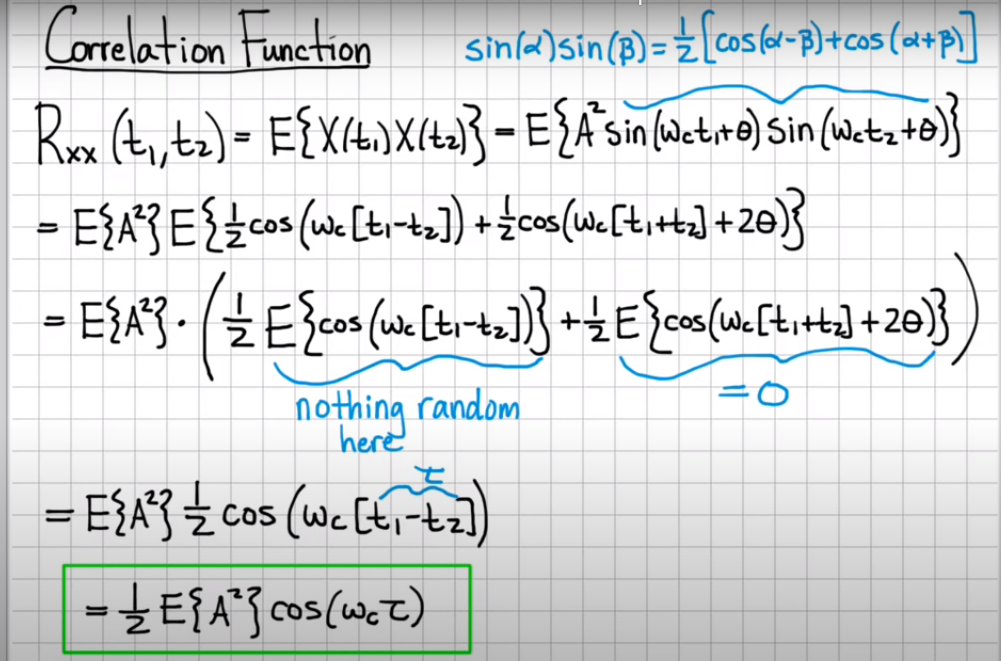 Correlation Function
sin(α)sin(β)=½[cos(α-β)+cos(α+β)]
Rxx(t₁,t₂)= E{X(t₁)X(t₂)} = E{A²sin(ωct₁+θ)sin(ωct₂+θ)}
= E{A²}E{½cos(ωc[t₁-t₂])+½cos(ωc[t₁+t₂]+2θ)}
= E{A²}·(½E{cos(ωc[t₁-t₂])}+½E{cos(ωc[t₁+t₂]+2θ)})
nothing random
here
=0
τ
= E{A²}½cos(ωc[t₁-t₂])
=½E{A²}cos(ωcτ)